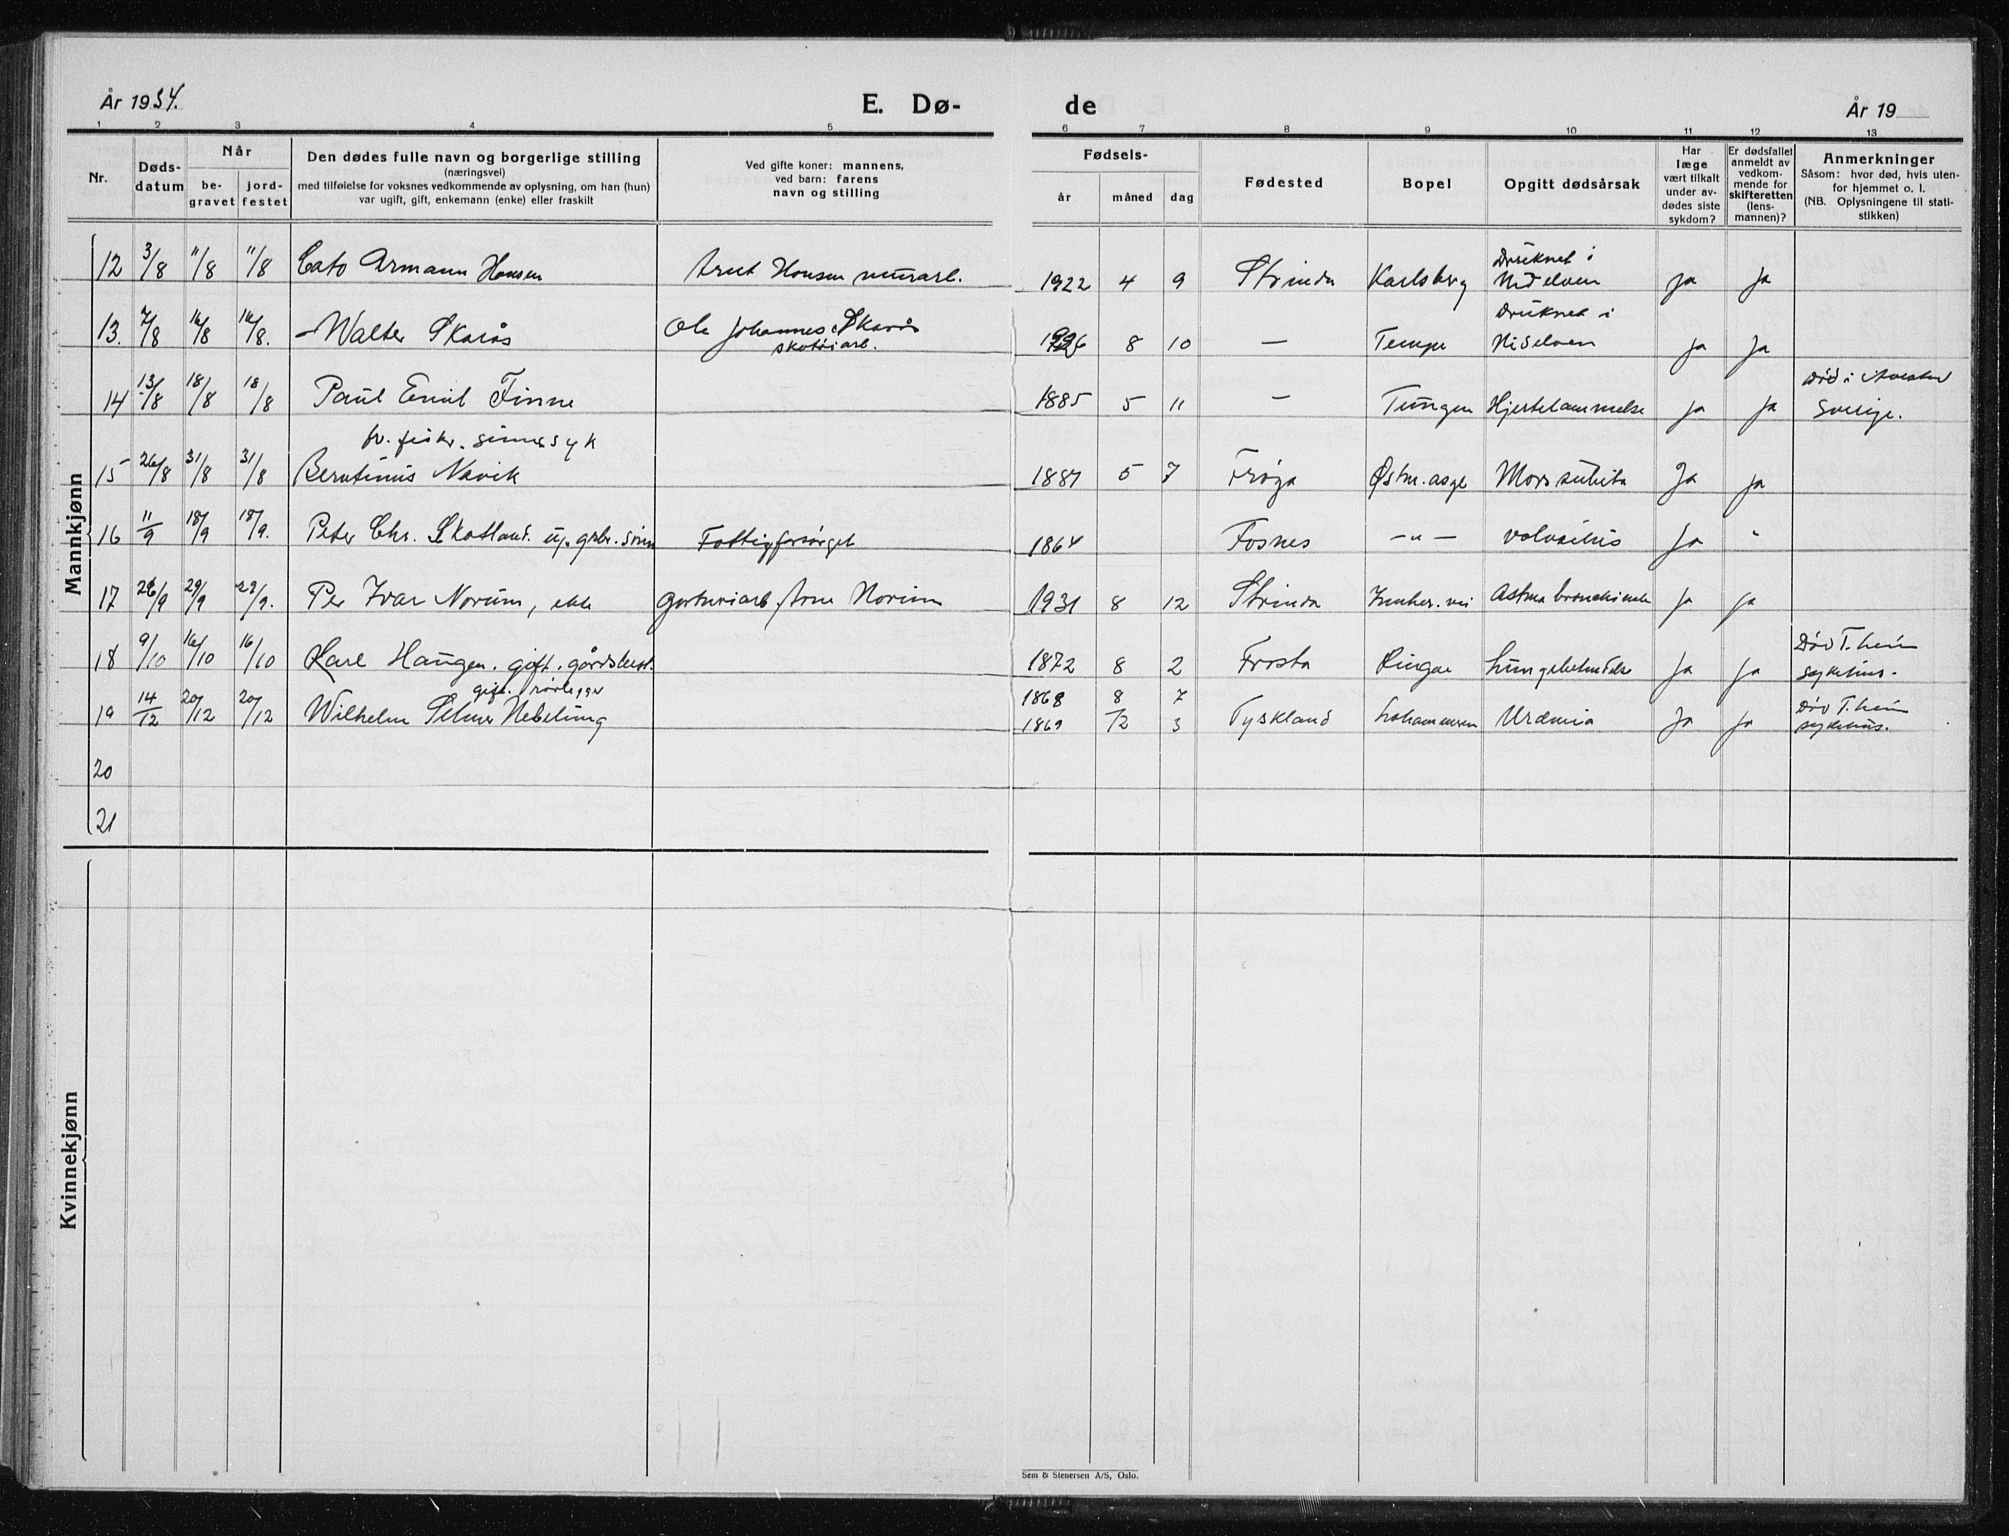 År 1934.
E. Dø-
de
År 19
1 2 3 4 5 6 7 8 9 10 11 12 13
Nr.
Døds-
datum
Når
be-
gravet
jord-
festet
Den dødes fulle navn og borgerlige stilling
(næringsvei)
med tilføielse for voksnes vedkommende av oplysning, om han (hun)
var ugift, gift, enkemann (enke) eller fraskilt
Ved gifte koner: mannens,
ved barn: farens
navn og stilling
Fødsels-
år
måned
dag
Fødested
Bopel
Opgitt dødsårsak
Har
læge
vært tilkalt
under av-
dødes siste
sykdom?
Er dødsfallet
anmeldt av
vedkom-
mende for
skifteretten
(lens-
mannen)?
Anmerkninger
Såsom: hvor død, hvis uten-
for hjemmet o. l.
(NB. Oplysningene til stati-
stikken)
Mannkjønn
12 3/8 11/8 11/8 Cato Armann Hansen Arnt Hansen murarb. 1922 4 9 Strinda Karlsberg Druknet i
Nidelven ja ja
13. 7/8 16/8 16/8. Walter Skarås Ole Johannes Skarås
skotøiarb. 1926 8 10 — Tempe Druknet i
Nidelven ja ja
14 13/8 18/8 18/8 Paul Emil Finne 1885 5 11 — Tungen Hjertelammelse ja ja Død i Avesta
Sverige.
fv. fisker. sinnssyk
15 26/8 31/8 31/8 Berntinus Navik 1887 5 7 Frøya Østm. asyl Mors subita Ja ja
16 11/9 18/9 18/9. Peter Chr. Skotland. Fattigforsørget 1864 Fosnes —"— volvulus Ja "
17 26/9 29/9 29/9. Per Ivar Norum, ekte gartneriarb. Arne Norum 1931 8 12 Strinda Innher. vei Astma ja ja
18 9/10 16/10 16/10 Karl Haugen. gift. gårdsbest. 1872 8 2 Frosta Ringve Lungebetendelse Ja ja Død T.heim
sykehus.
gift. rørlegger
19 14/12 20/12 20/12 Wilhelm Selmer Nebelung 1868 8 7
1869 12 3 Tyskland Lohammeren Urämia Ja ja Død T.heim
sykehus.
20
21
Kvinnekjønn
Sem & Stenersen A/S, Oslo.